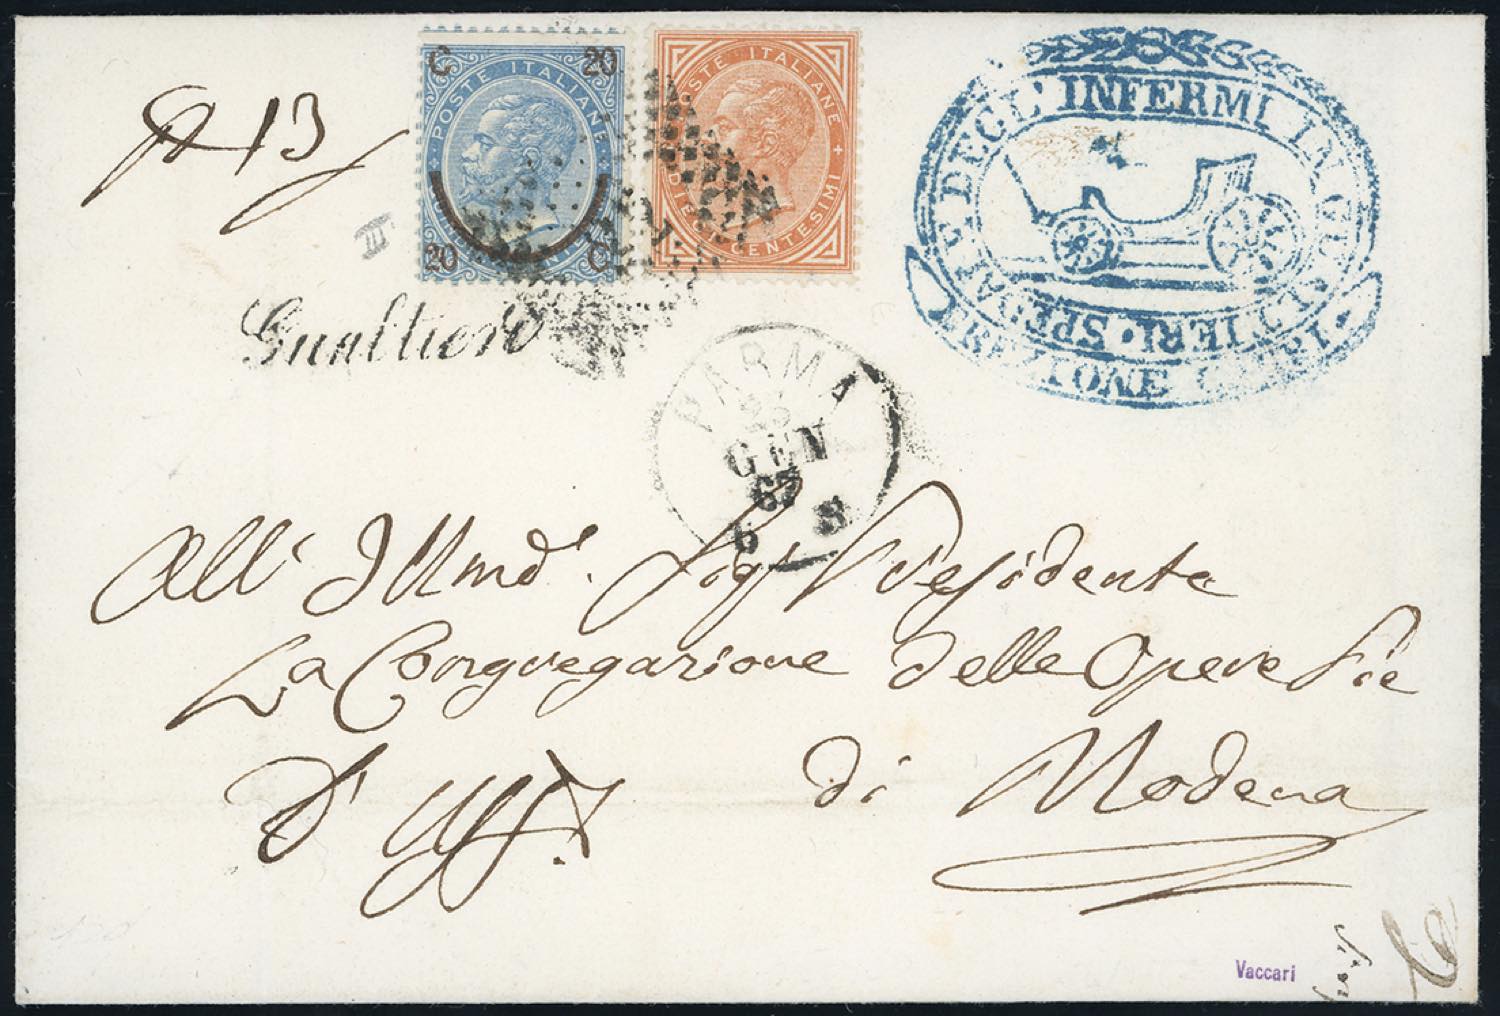 N 13
C 20
POSTE ITALIANE
20 C
POSTE ITALIANE
DIECI CENTESIMI
SPEDALE DEGL' INFERMI IN GUALTIERI
DIREZIONE
III
Gualtieri
PARMA
25
GEN
67
6 S
All' Illmo. Sigr Presidente
La Congregazione delle Opere Pie
D' Uff.
di Modena
Vaccari